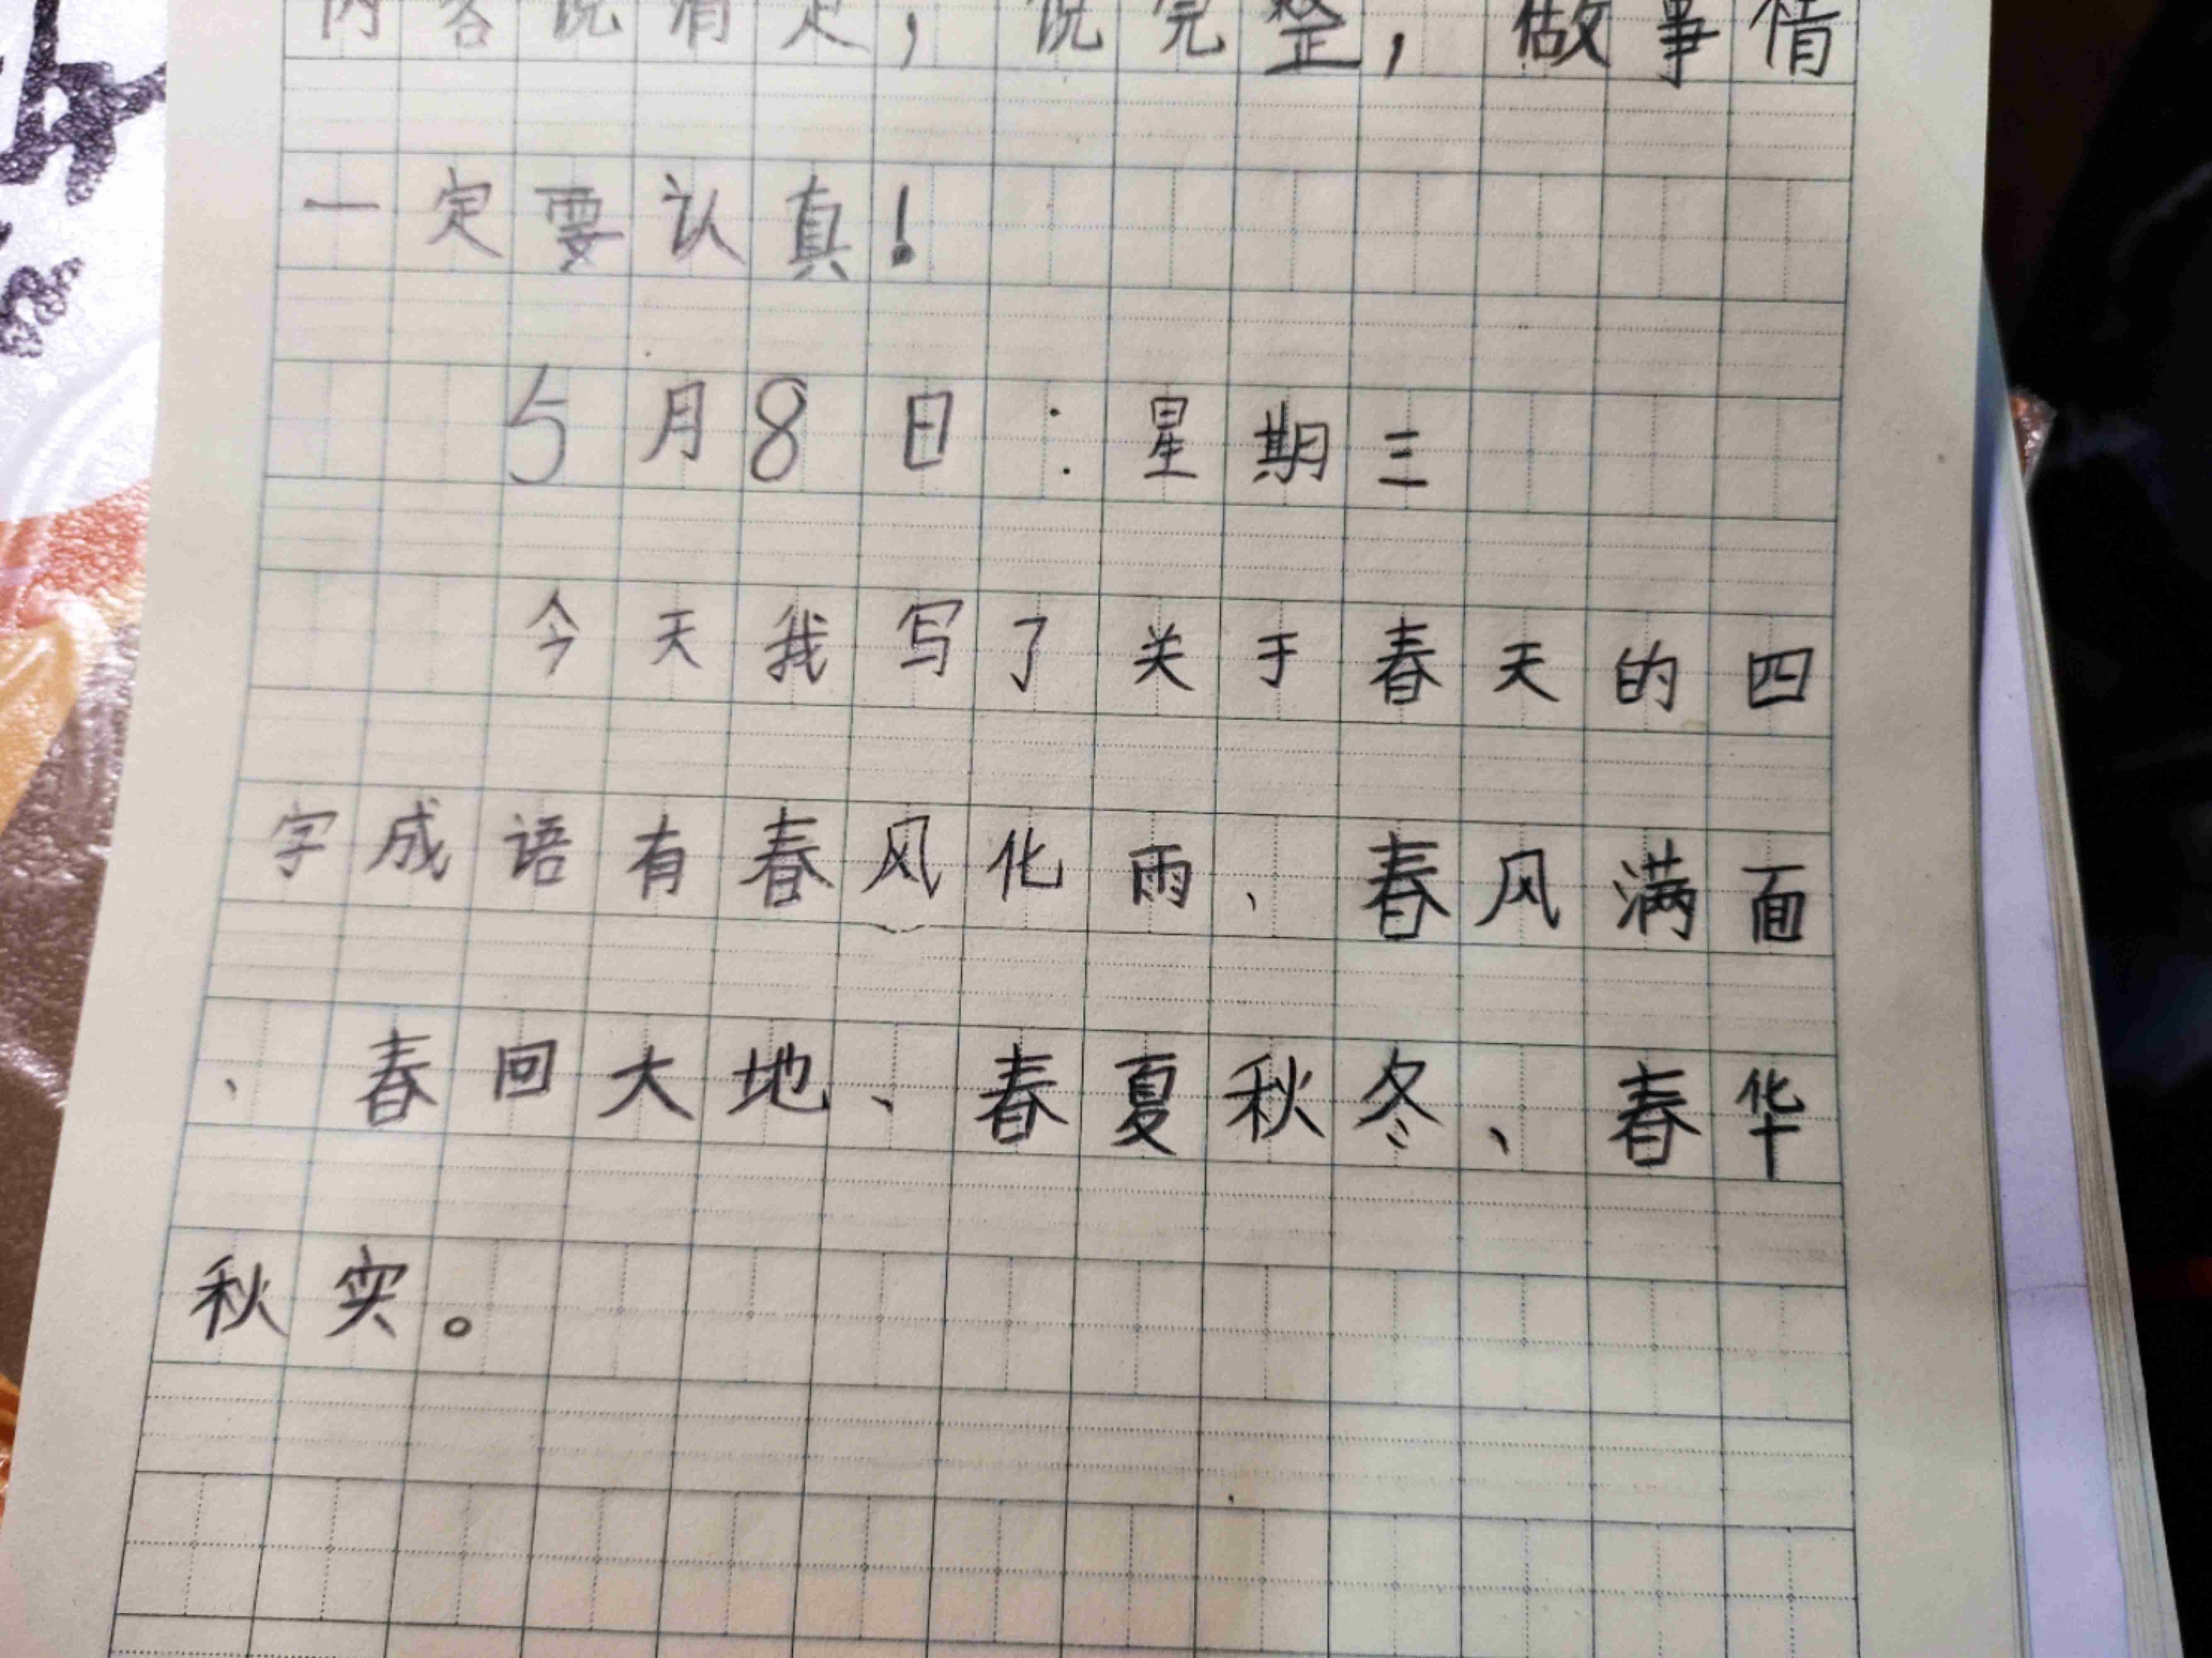 内容说清楚，说完整，做事情
一定要认真！
5月8日：星期三
今天我写了关于春天的四
字成语有春风化雨、春风满面
、春回大地、春夏秋冬、春华
秋实。